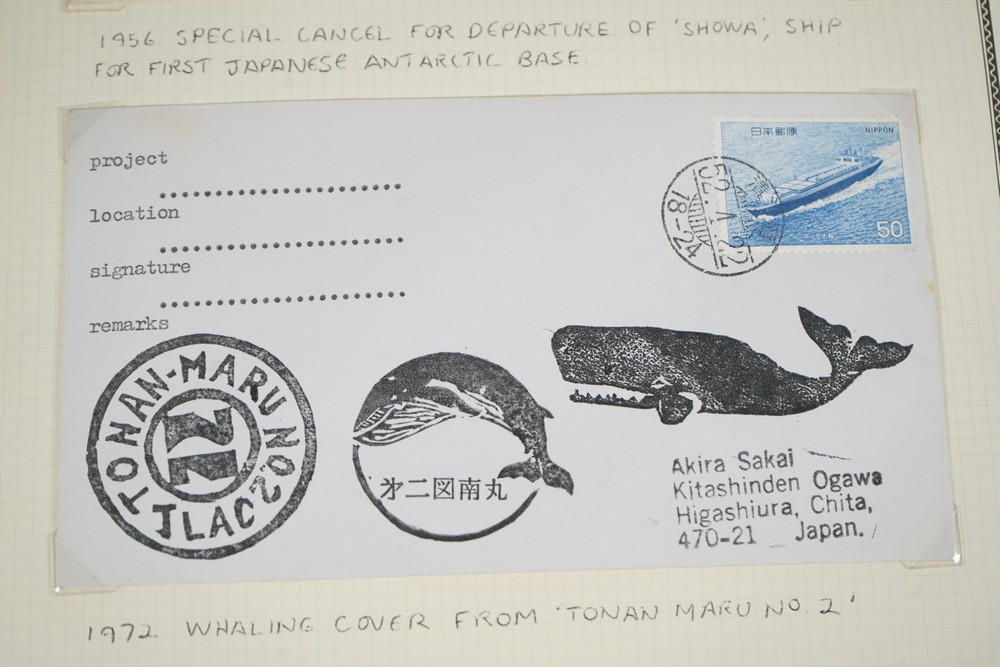 1956 SPECIAL CANCEL FOR DEPARTURE OF 'SHOWA', SHIP
FOR FIRST JAPANESE ANTARCTIC BASE.
project
location
signature
remarks
日本郵便 NIPPON
50
52.1.22
18-24
TONAN-MARU NO2
JLAC
才二図南丸
Akira Sakai
Kitashinden Ogawa
Higashiura, Chita,
470-21 Japan.
1972 WHALING COVER FROM 'TONAN MARU NO. 2'